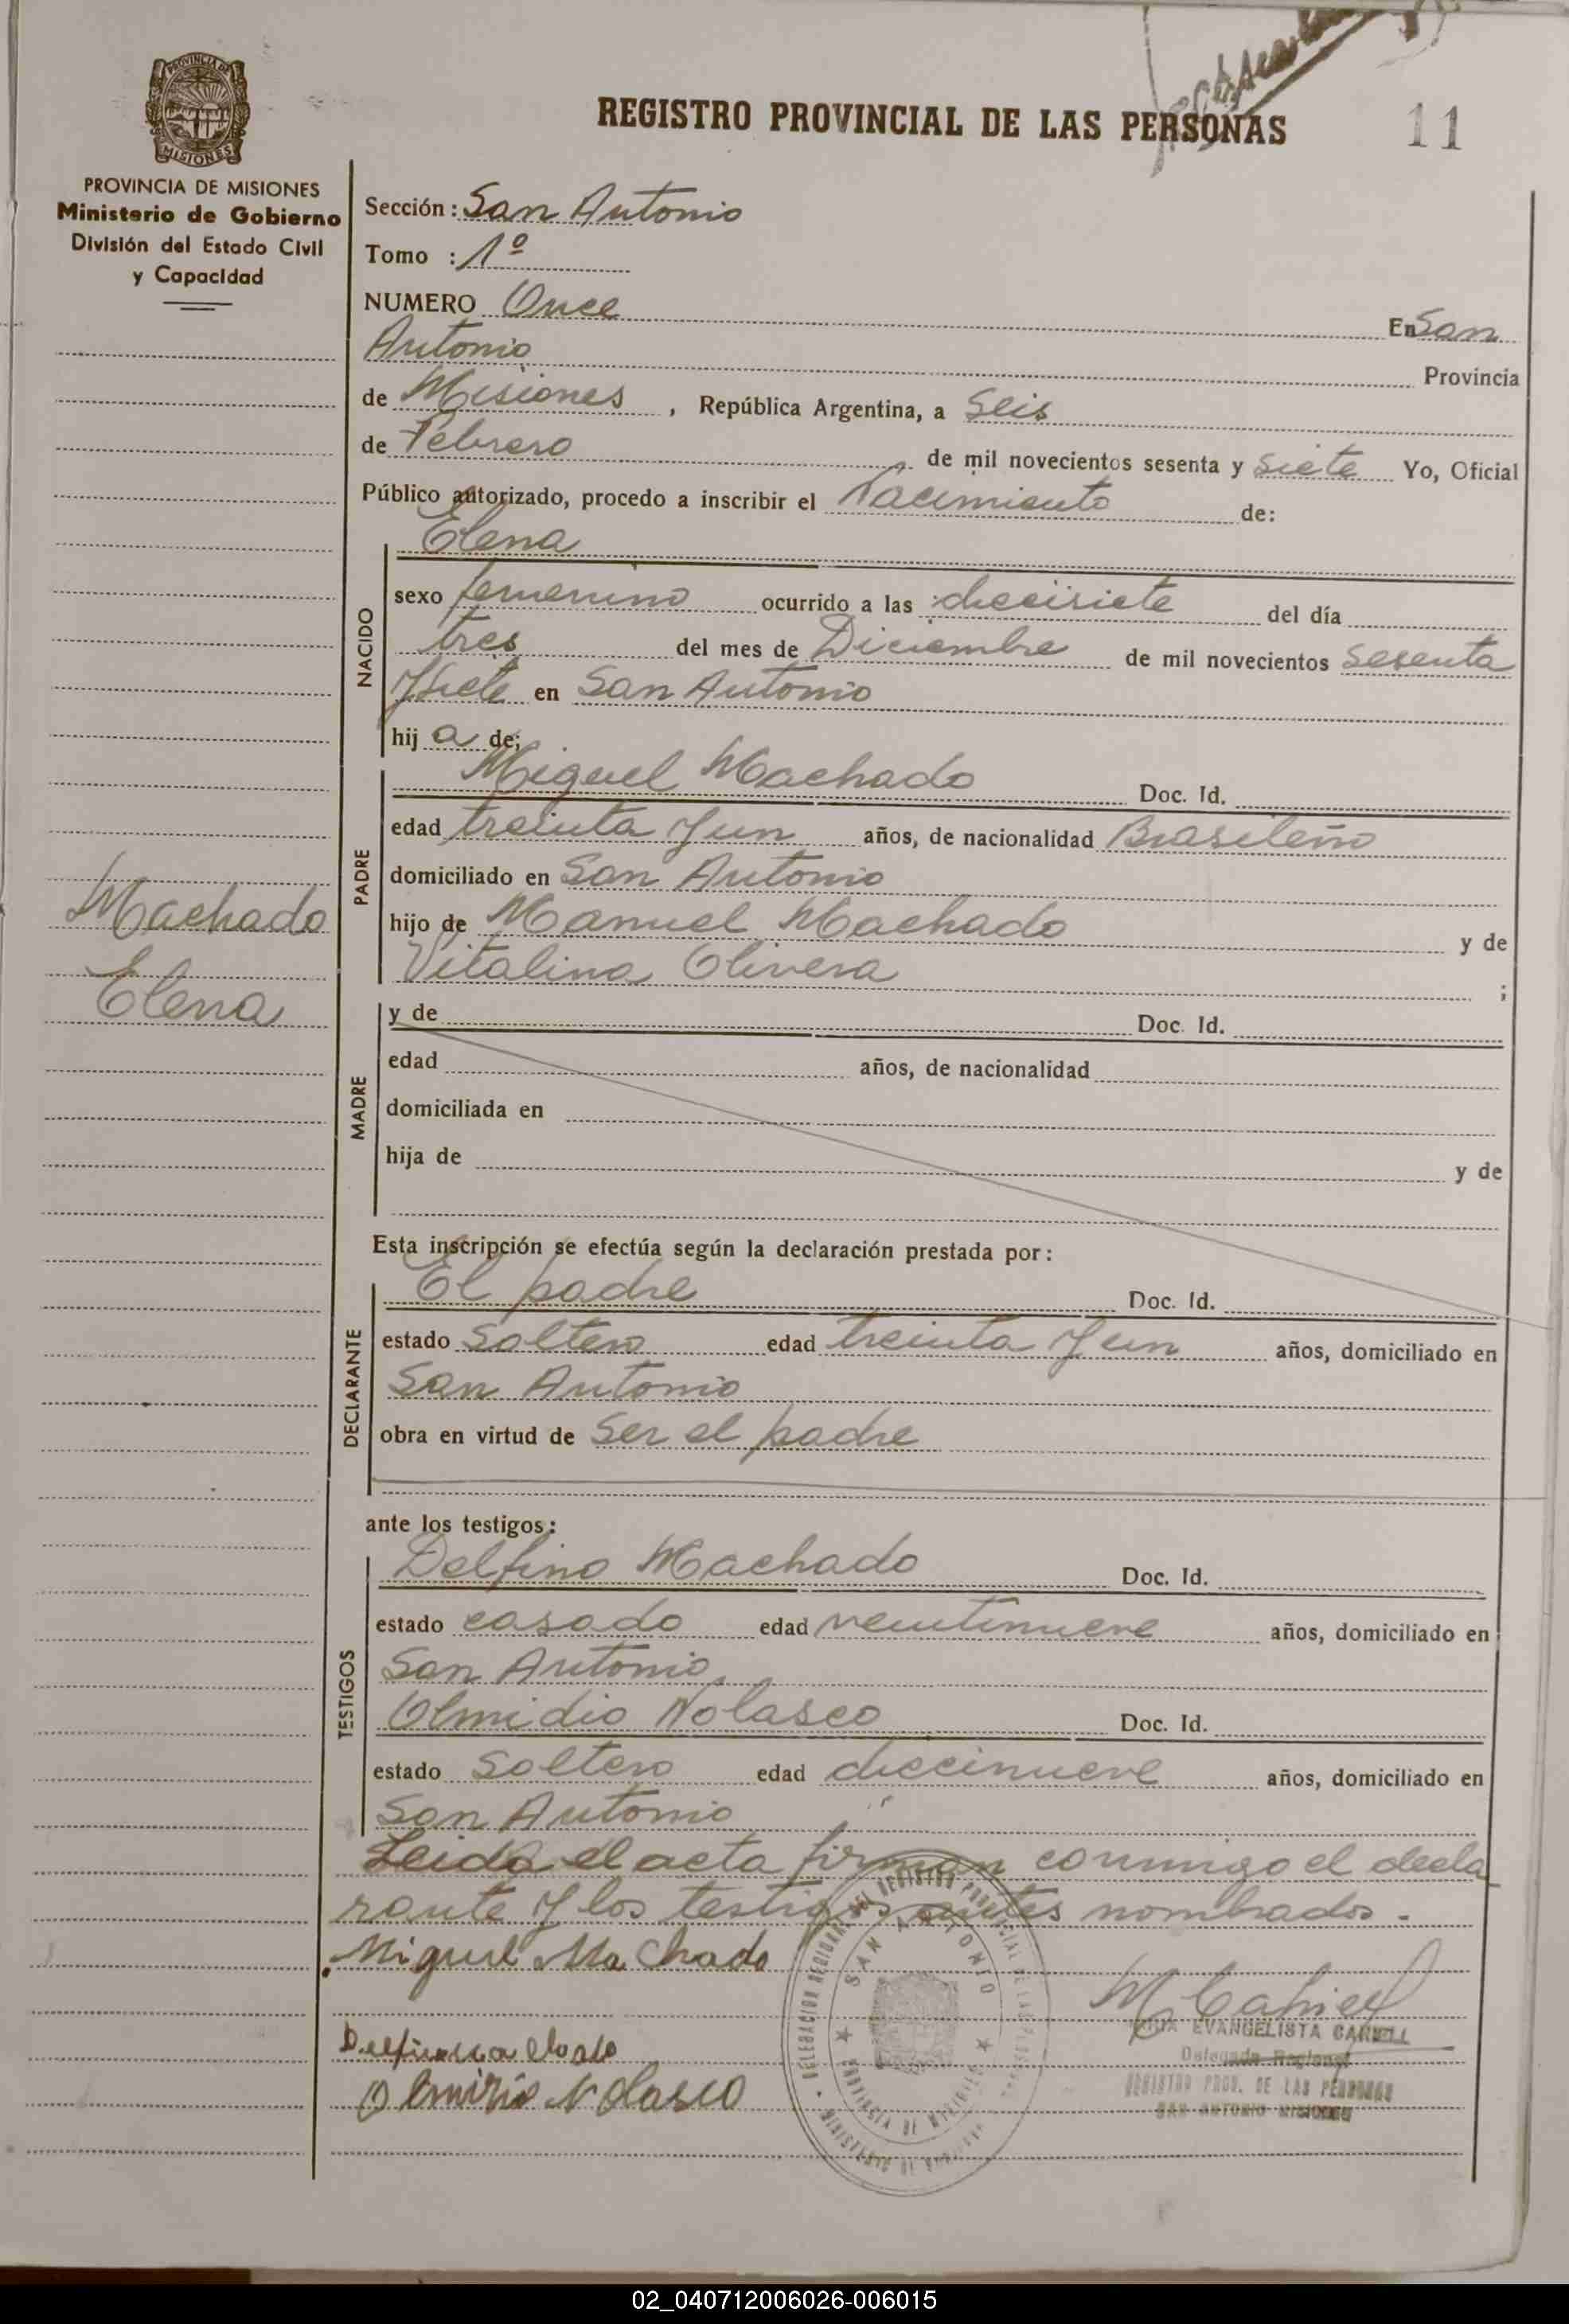 REGISTRO PROVINCIAL DE LAS PERSONAS
11
PROVINCIA DE MISIONES
Ministerio de Gobierno
División del Estado Civil
y Capacidad
Sección: San Antonio
Tomo : 1º
NUMERO Once En San
Antonio Provincia
de Misiones , República Argentina, a Seis
de Febrero de mil novecientos sesenta y siete Yo, Oficial
Público autorizado, procedo a inscribir el Nacimiento de:
NACIDO
Elena
sexo femenino ocurrido a las diecisiete del día
tres del mes de Diciembre de mil novecientos sesenta
y siete en San Antonio
hij a de:
PADRE
Miguel Machado Doc. Id.
edad treinta y un años, de nacionalidad Brasileño
domiciliado en San Antonio
hijo de Manuel Machado y de
Vitalina Olivera ;
Machado
Elena
MADRE
y de Doc. Id.
edad años, de nacionalidad
domiciliada en
hija de y de
Esta inscripción se efectúa según la declaración prestada por:
DECLARANTE
El padre Doc. Id.
estado Soltero edad treinta y un años, domiciliado en
San Antonio
obra en virtud de Ser el padre
ante los testigos:
TESTIGOS
Delfino Machado Doc. Id.
estado casado edad veintinueve años, domiciliado en
San Antonio
Olmidio Nolasco Doc. Id.
estado Soltero edad diecinueve años, domiciliado en
San Antonio
Leida el acta firman conmigo el decla
rante y los testigos antes nombrados.
Miguel Ma Chado
Olmirio Nolasco
EVANGELISTA
Delegada Regional
REGISTRO PROV. DE LAS PERSONAS
SAN ANTONIO MISIONES
SAN ANTONIO
PROVINCIA DE MISIONES
02_040712006026-006015